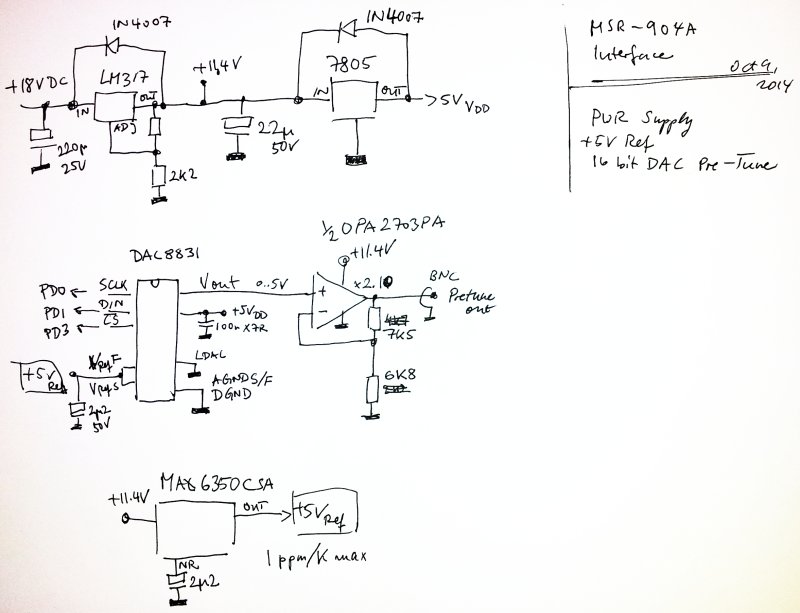 1N4007
+18VDC
LM317
IN
OUT
ADJ
220µ
25V
2K2
+11,4V
22µ
50V
1N4007
7805
IN
OUT
5V VDD
MSR-904A
Interface
Oct 9,
2014
PWR Supply
+5V Ref
16 bit DAC Pre-Tune
½ OPA2703PA
+11.4V
DAC8831
PD0 SCLK
PD1 DIN
PD3 CS
Vout 0..5V
+5VDD
100n X7R
LDAC
AGNDS/F
DGND
+5V Ref
VrefF
VrefS
2µ2
50V
+
-
x2.10
BNC
Pretune
out
7K5
6K8
MAX6350CSA
+11.4V
OUT
+5V Ref
1ppm/K max
NR
2µ2